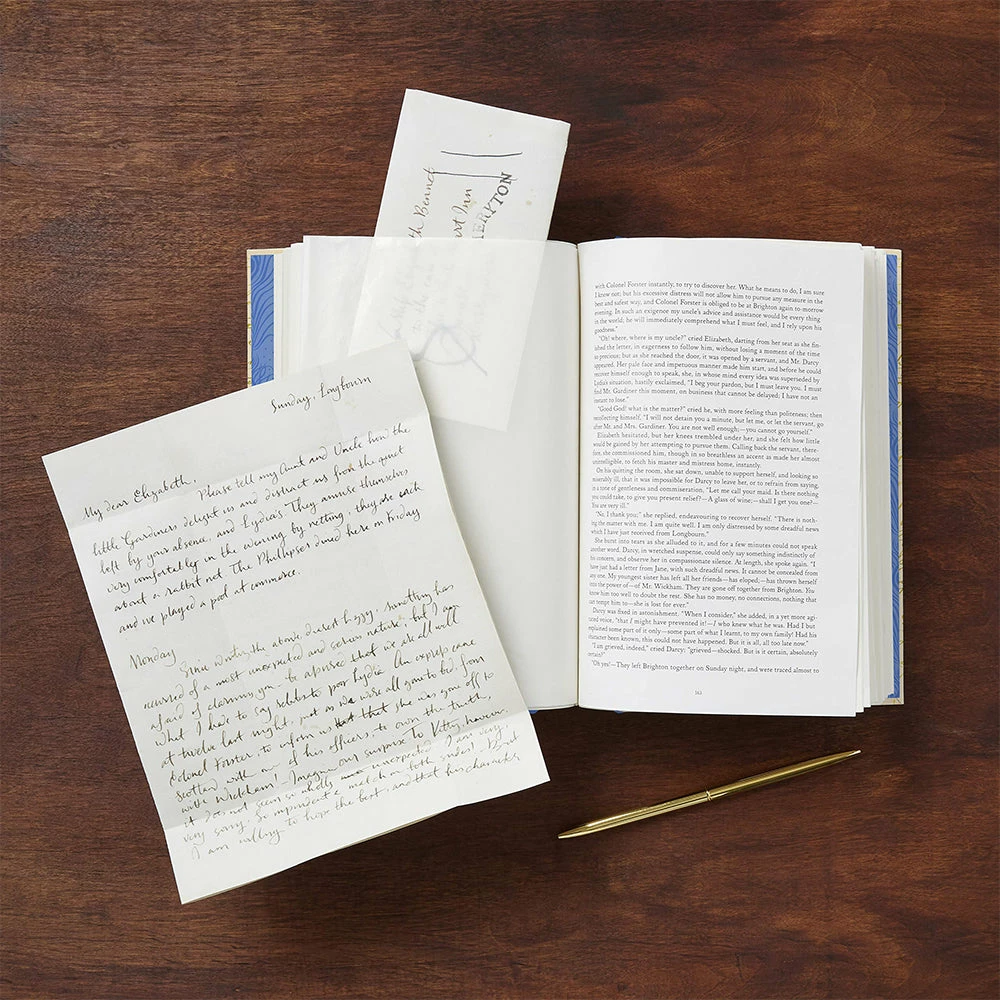 th Bennet
art Inn
MERYTON
Sunday, Longbourn
My dear Elizabeth,
Please tell my Aunt and Uncle how the
little Gardiners delight us and distract us from the quiet
left by your absence, and Lydia's. They amuse themselves
very comfortably in the evening by netting; they are each
about a rabbit net. The Phillipses dined here on Friday
and we played a pool at commerce.
Monday
Since writing the above, dearest Lizzy, something has
occurred of a most unexpected and serious nature; but I am
afraid of alarming you – be assured that we are all well.
What I have to say relates to poor Lydia. An express came
at twelve last night, just as we were all gone to bed, from
Colonel Forster to inform us that she was gone off to
Scotland with one of his officers; to own the truth,
with Wickham! Imagine our surprise. To Kitty, however,
it does not seem so wholly unexpected. I am very,
very sorry. So imprudent a match on both sides! But
I am willing to hope the best, and that his character
with Colonel Forster instantly, to try to discover her. What he means to do, I am sure
I know not; but his excessive distress will not allow him to pursue any measure in the
best and safest way, and Colonel Forster is obliged to be at Brighton again to-morrow
evening. In such an exigence my uncle's advice and assistance would be every thing
in the world; he will immediately comprehend what I must feel, and I rely upon his
goodness."
"Oh! where, where is my uncle?" cried Elizabeth, darting from her seat as she fin-
ished the letter, in eagerness to follow him, without losing a moment of the time
so precious; but as she reached the door, it was opened by a servant, and Mr. Darcy
appeared. Her pale face and impetuous manner made him start, and before he could
recover himself enough to speak, she, in whose mind every idea was superseded by
Lydia's situation, hastily exclaimed, "I beg your pardon, but I must leave you. I must
find Mr. Gardiner this moment, on business that cannot be delayed; I have not an
instant to lose."
"Good God! what is the matter?" cried he, with more feeling than politeness; then
recollecting himself, "I will not detain you a minute, but let me, or let the servant, go
after Mr. and Mrs. Gardiner. You are not well enough;—you cannot go yourself."
Elizabeth hesitated, but her knees trembled under her, and she felt how little
would be gained by her attempting to pursue them. Calling back the servant, there-
fore, she commissioned him, though in so breathless an accent as made her almost
unintelligible, to fetch his master and mistress home, instantly.
On his quitting the room, she sat down, unable to support herself, and looking so
miserably ill, that it was impossible for Darcy to leave her, or to refrain from saying,
in a tone of gentleness and commiseration, "Let me call your maid. Is there nothing
you could take, to give you present relief?—A glass of wine;—shall I get you one?—
You are very ill."
"No, I thank you;" she replied, endeavouring to recover herself. "There is noth-
ing the matter with me. I am quite well. I am only distressed by some dreadful news
which I have just received from Longbourn."
She burst into tears as she alluded to it, and for a few minutes could not speak
another word. Darcy, in wretched suspense, could only say something indistinctly of
his concern, and observe her in compassionate silence. At length, she spoke again. "I
have just had a letter from Jane, with such dreadful news. It cannot be concealed from
any one. My youngest sister has left all her friends—has eloped;—has thrown herself
into the power of—of Mr. Wickham. They are gone off together from Brighton. You
know him too well to doubt the rest. She has no money, no connections, nothing that
can tempt him to—she is lost for ever."
Darcy was fixed in astonishment. "When I consider," she added, in a yet more agi-
tated voice, "that I might have prevented it!—I who knew what he was. Had I but
explained some part of it only—some part of what I learnt, to my own family! Had his
character been known, this could not have happened. But it is all, all too late now."
"I am grieved, indeed," cried Darcy; "grieved—shocked. But is it certain, absolutely
certain?"
"Oh yes!—They left Brighton together on Sunday night, and were traced almost to
163